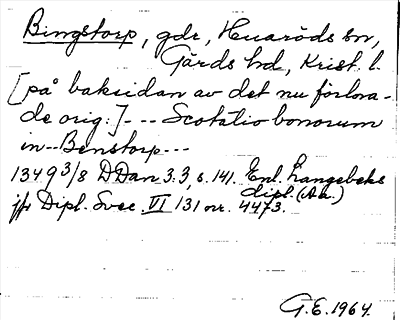 Bingstorp, gdr, Huaröds sn,
Gärds hd, Krist. l.
[på baksidan av det nu förlora-
de orig.:]--- Scotatio bonorum
in--Benstorp---
1349 3/8 DDan 3:3, s. 141. Enl. Langebeks
dipl. (Aa.)
jfr Dipl. Svec. VI 131 nr. 4473.
G.E. 1964.